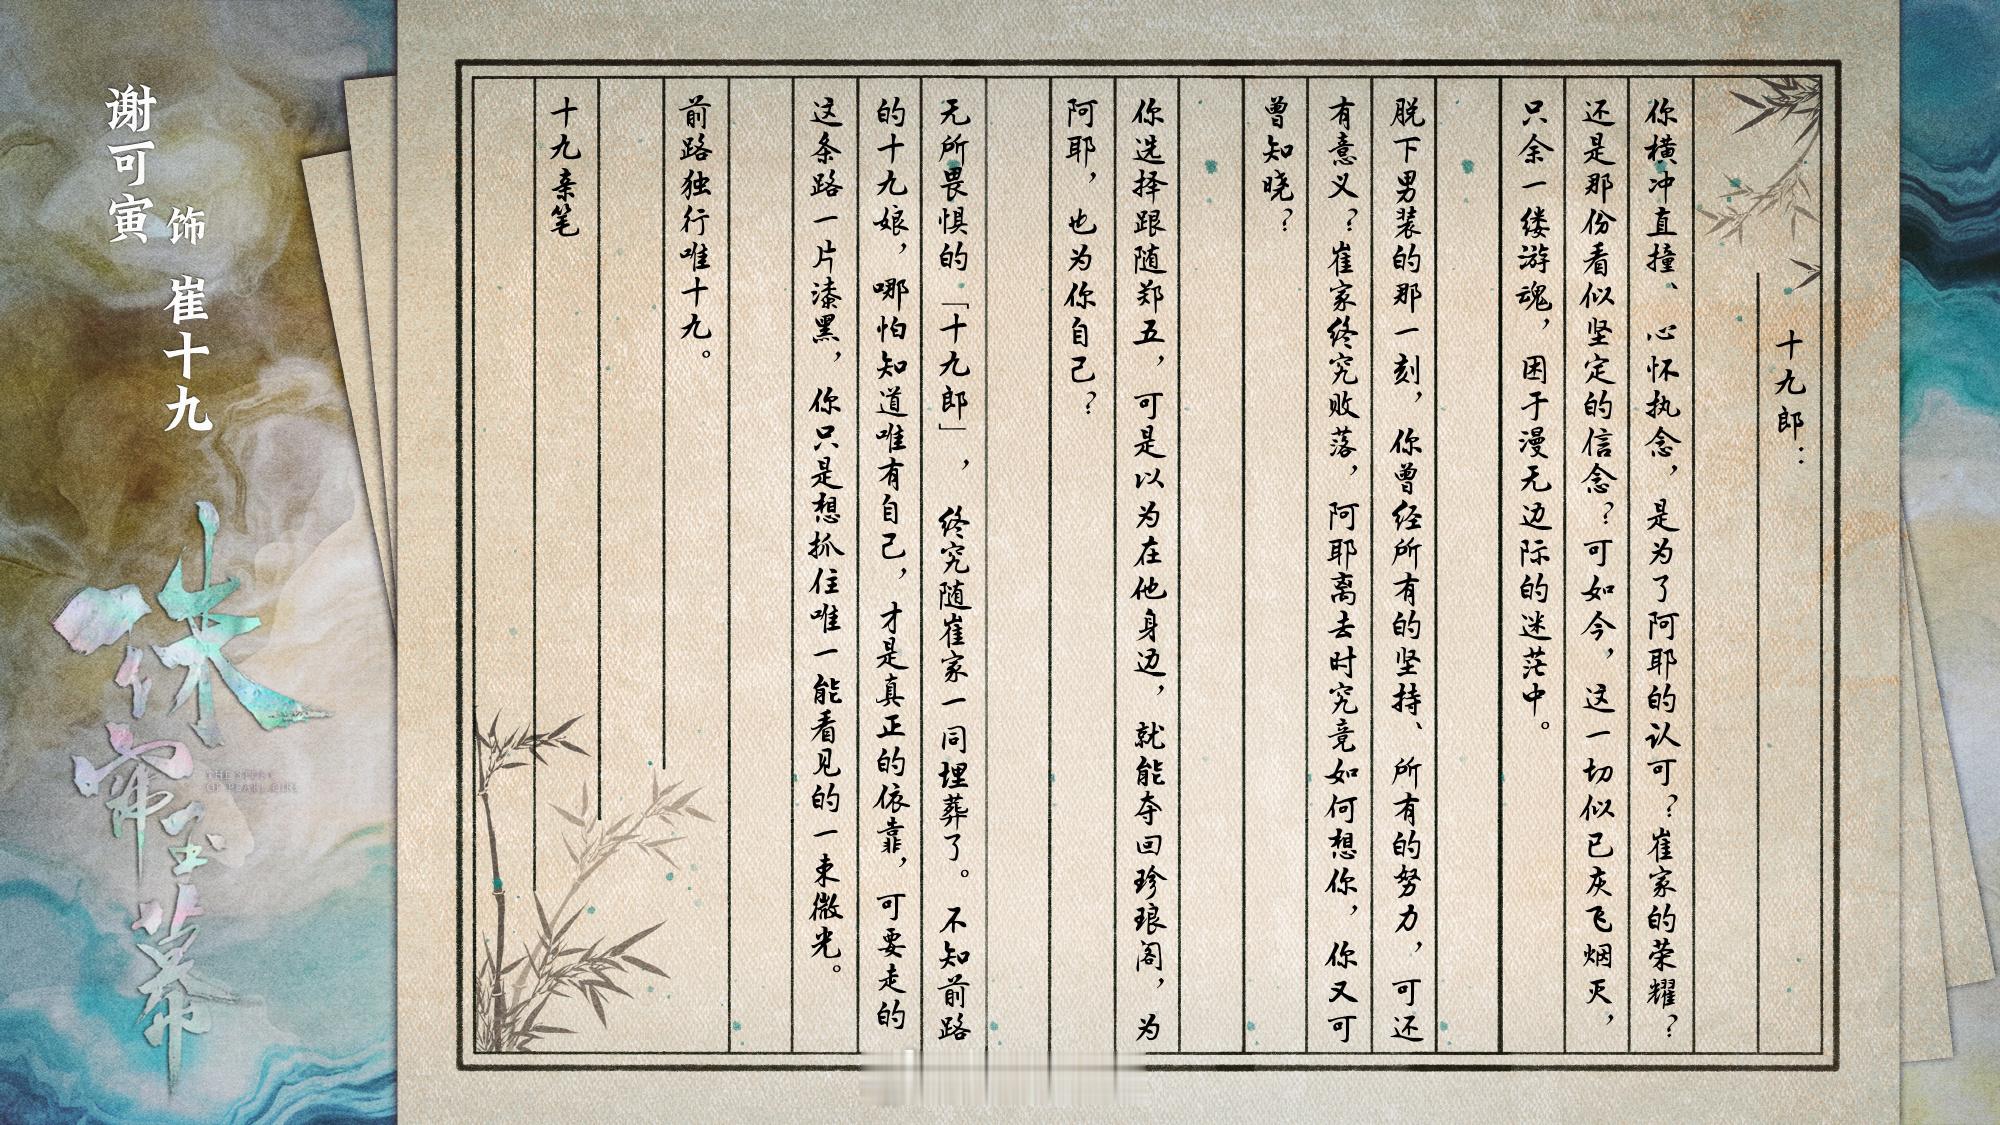 十九郎：
你横冲直撞、心怀执念，是为了阿耶的认可？崔家的荣耀？
还是那份看似坚定的信念？可如今，这一切似已灰飞烟灭，
只余一缕游魂，困于漫无边际的迷茫中。
脱下男装的那一刻，你曾经所有的坚持、所有的努力，可还
有意义？崔家终究败落，阿耶离去时究竟如何想你，你又可
曾知晓？
你选择跟随郑五，可是以为在他身边，就能夺回珍琅阁，为
阿耶，也为你自己？
无所畏惧的「十九郎」，终究随崔家一同埋葬了。不知前路
的十九娘，哪怕知道唯有自己，才是真正的依靠，可要走的
这条路一片漆黑，你只是想抓住唯一能看见的一束微光。
前路独行唯十九。
十九亲笔
谢可寅
饰 崔十九
珠帘玉幕
THE STORY
OF PEARL GIRL